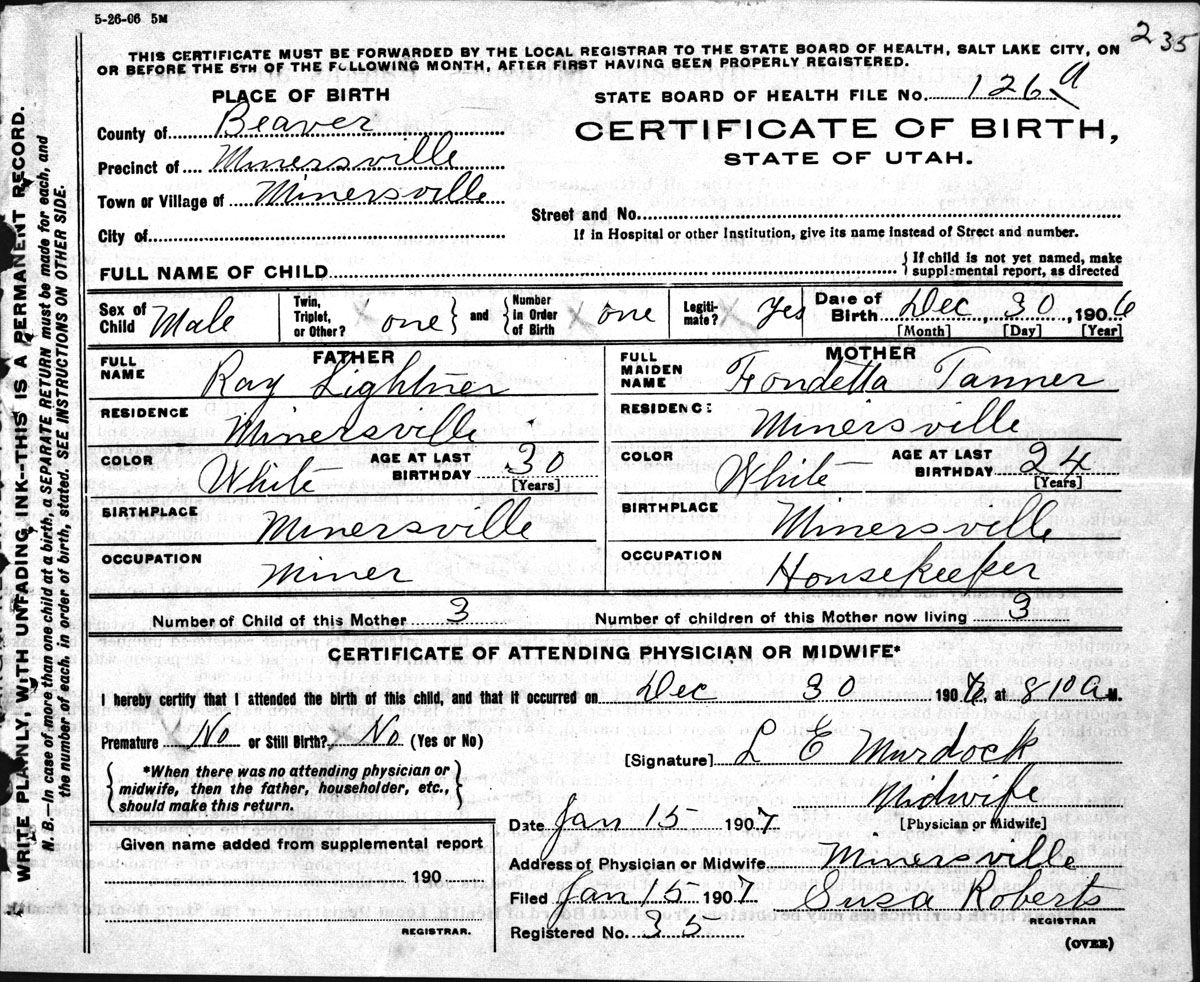 5-26-06 5M
235
THIS CERTIFICATE MUST BE FORWARDED BY THE LOCAL REGISTRAR TO THE STATE BOARD OF HEALTH, SALT LAKE CITY, ON
OR BEFORE THE 5TH OF THE FOLLOWING MONTH, AFTER FIRST HAVING BEEN PROPERLY REGISTERED.
PLACE OF BIRTH
STATE BOARD OF HEALTH FILE No. 126 a
County of Beaver
CERTIFICATE OF BIRTH,
STATE OF UTAH.
Precinct of Minersville
Town or Village of Minersville
Street and No.
City of
If in Hospital or other Institution, give its name instead of Street and number.
FULL NAME OF CHILD
If child is not yet named, make
supplemental report, as directed
Sex of Child Male
Twin, Triplet, or Other? one and Number in Order of Birth one
Legitimate? Yes
Date of Birth Dec 30, 1906
[Month] [Day] [Year]
FATHER
FULL NAME Ray Lightner
RESIDENCE Minersville
COLOR White AGE AT LAST BIRTHDAY 30 [Years]
BIRTHPLACE Minersville
OCCUPATION Miner
MOTHER
FULL MAIDEN NAME Fondetta Tanner
RESIDENCE Minersville
COLOR White AGE AT LAST BIRTHDAY 24 [Years]
BIRTHPLACE Minersville
OCCUPATION Housekeeper
Number of Child of this Mother 3 Number of children of this Mother now living 3
CERTIFICATE OF ATTENDING PHYSICIAN OR MIDWIFE*
I hereby certify that I attended the birth of this child, and that it occurred on Dec 30 1906, at 8 10 a M.
Premature No or Still Birth? No (Yes or No)
[Signature] L E Murdock
*When there was no attending physician or
midwife, then the father, householder, etc.,
should make this return.
Midwife
[Physician or Midwife]
Date Jan 15 1907
Given name added from supplemental report
190
REGISTRAR.
Address of Physician or Midwife Minersville
Filed Jan 15 1907 Susa Roberts
REGISTRAR
Registered No. 35
(OVER)
WRITE PLAINLY, WITH UNFADING INK--THIS IS A PERMANENT RECORD.
N. B.—In case of more than one child at a birth, a SEPARATE RETURN must be made for each, and
the number of each, in order of birth, stated. SEE INSTRUCTIONS ON OTHER SIDE.